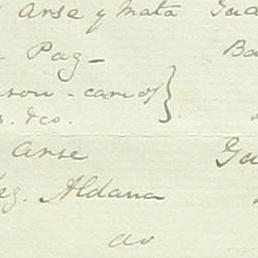 Arse y Mata Gua
Pag- Ba
son - care of }
s. &co.
Arse Gu
eg. Aldana
do